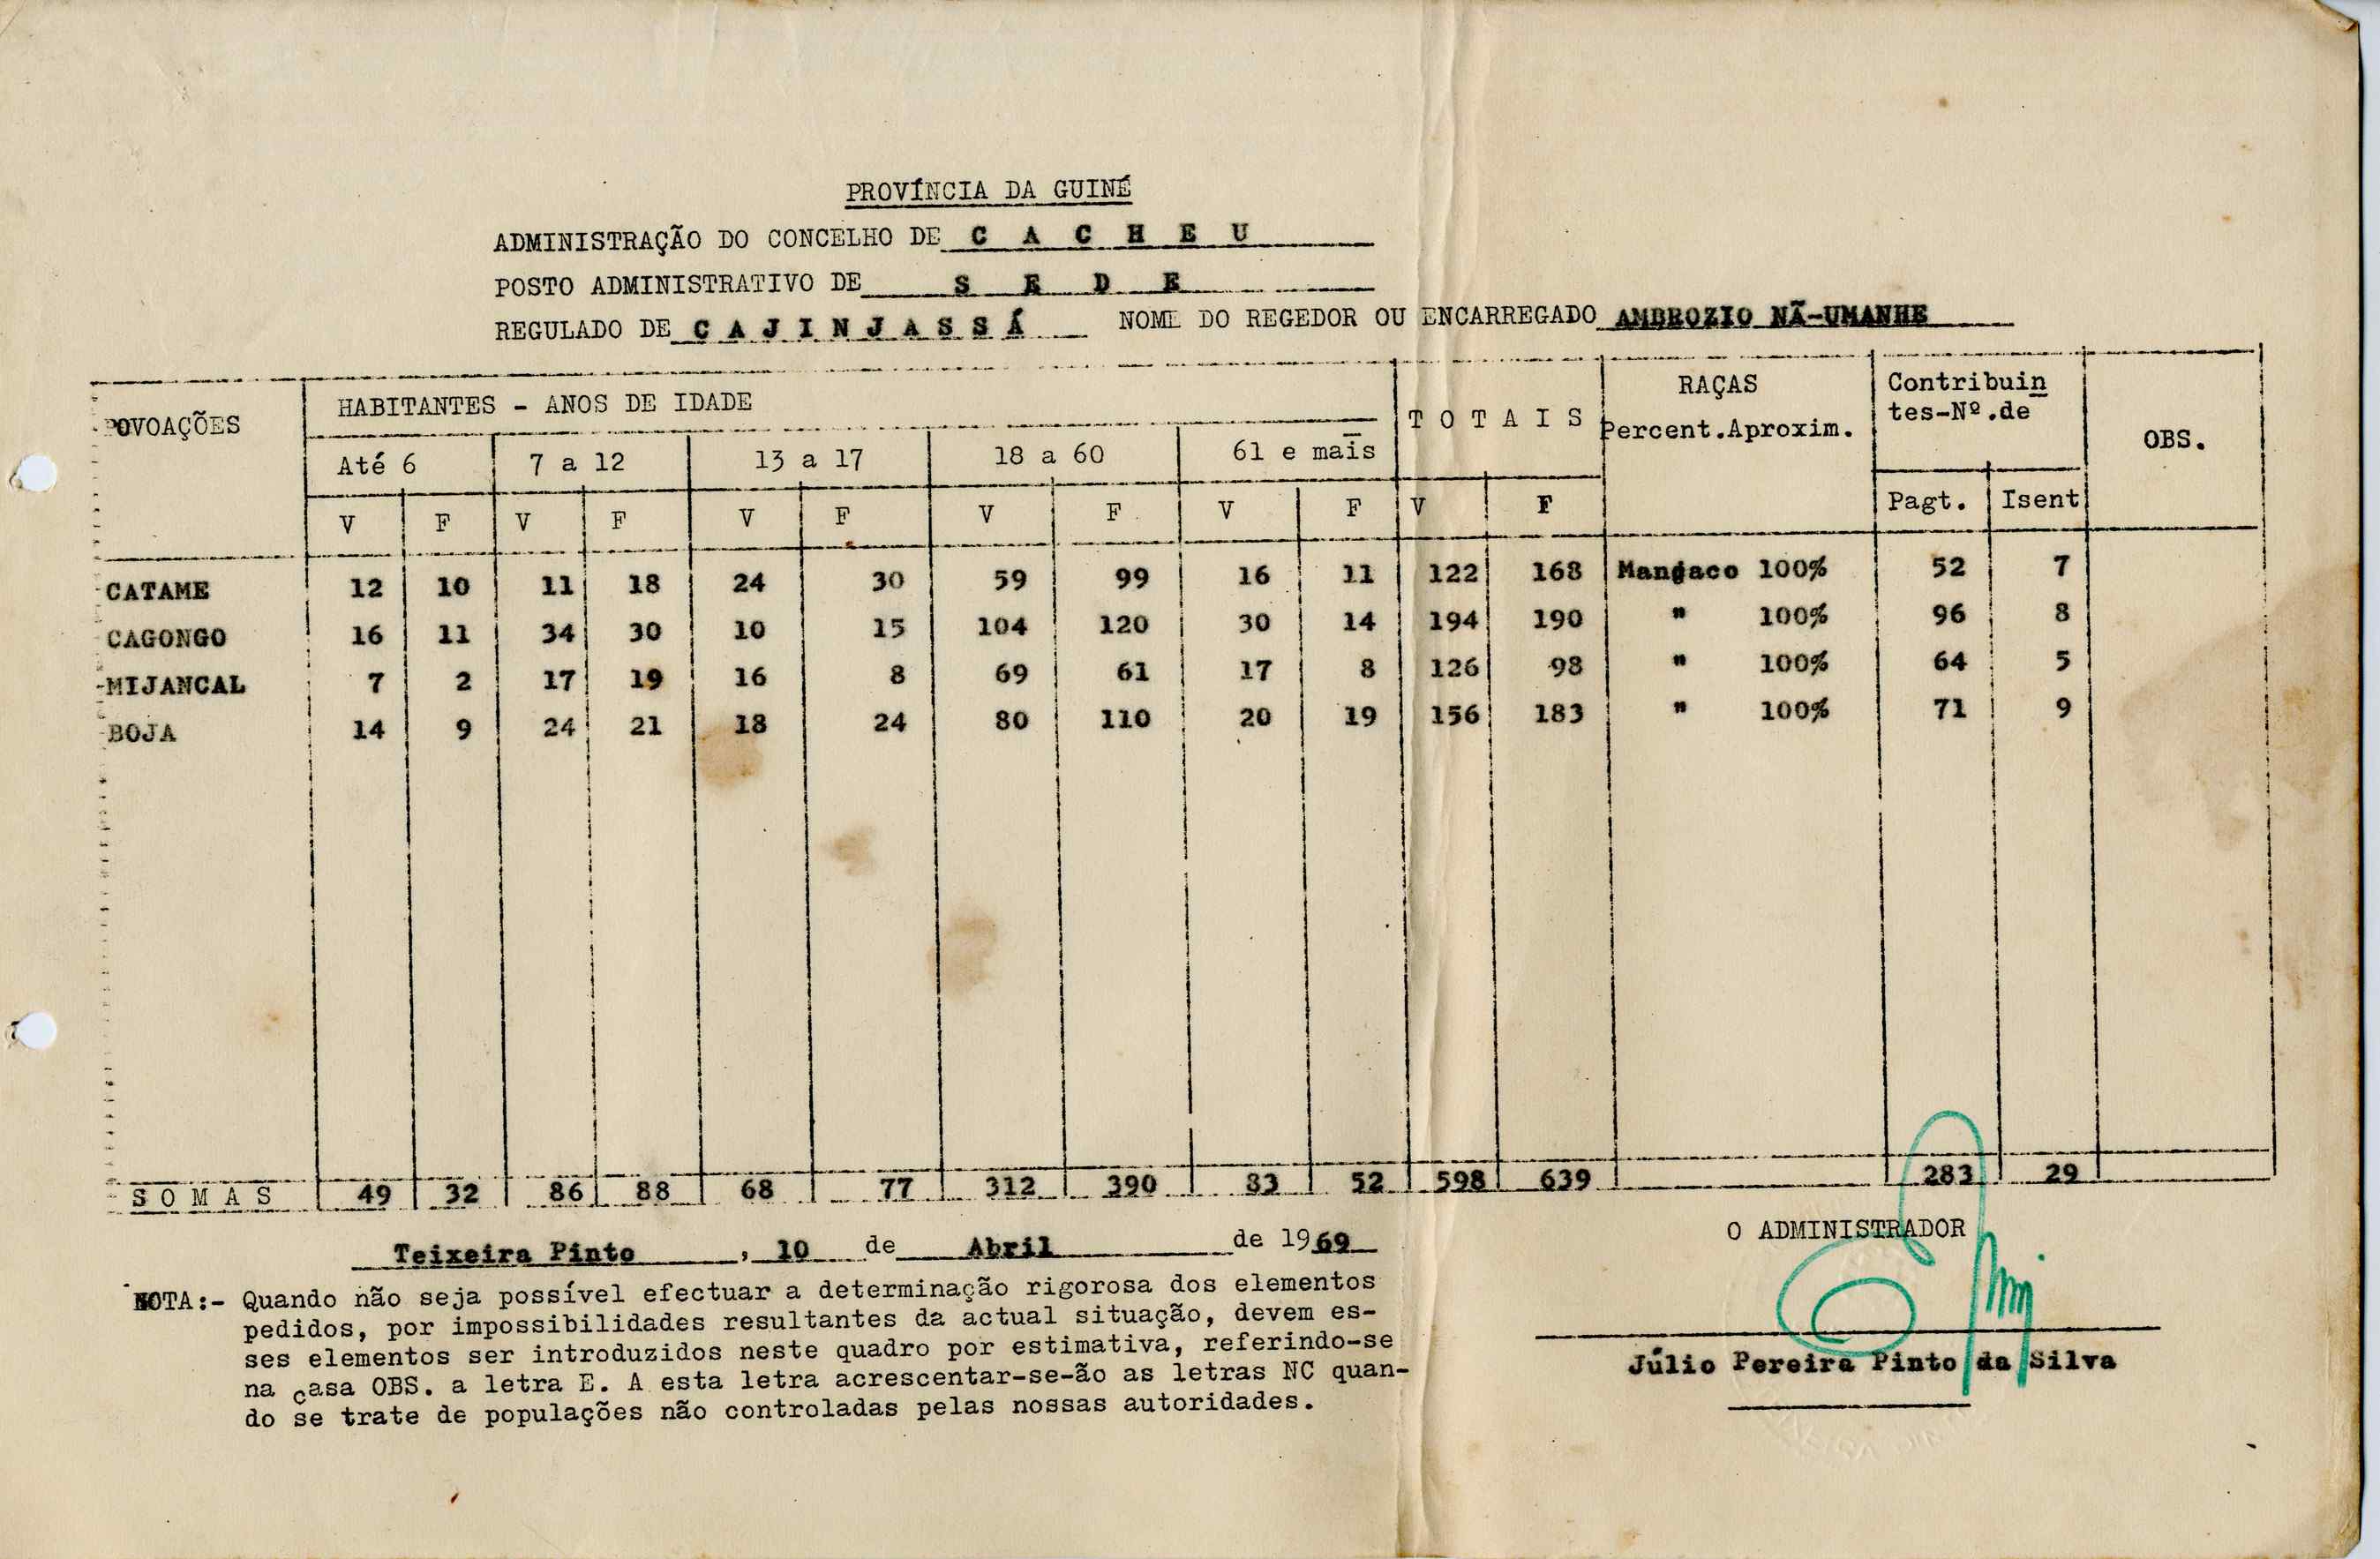 PROVÍNCIA DA GUINÉ
ADMINISTRAÇÃO DO CONCELHO DE C A C H E U
POSTO ADMINISTRATIVO DE S E D E
REGULADO DE C A J I N J A S S Á NOME DO REGEDOR OU ENCARREGADO AMBROZIO NÃ-UMANHE
POVOAÇÕES HABITANTES - ANOS DE IDADE T O T A I S RAÇAS Percent.Aproxim. Contribuin tes-Nº.de OBS.
Até 6 7 a 12 13 a 17 18 a 60 61 e mais
V F V F V F V F V F V F Pagt. Isent
CATAME 12 10 11 18 24 30 59 99 16 11 122 168 Manjaco 100% 52 7
CAGONGO 16 11 34 30 10 15 104 120 30 14 194 190 " 100% 96 8
-MIJANCAL 7 2 17 19 16 8 69 61 17 8 126 98 " 100% 64 5
BOJA 14 9 24 21 18 24 80 110 20 19 156 183 " 100% 71 9
S O M A S 49 32 86 88 68 77 312 390 83 52 598 639 283 29
Teixeira Pinto, 10 de Abril de 1969
O ADMINISTRADOR
NOTA:- Quando não seja possível efectuar a determinação rigorosa dos elementos
pedidos, por impossibilidades resultantes da actual situação, devem es-
ses elementos ser introduzidos neste quadro por estimativa, referindo-se
na casa OBS. a letra E. A esta letra acrescentar-se-ão as letras NC quan-
do se trate de populações não controladas pelas nossas autoridades.
Júlio Pereira Pinto da Silva